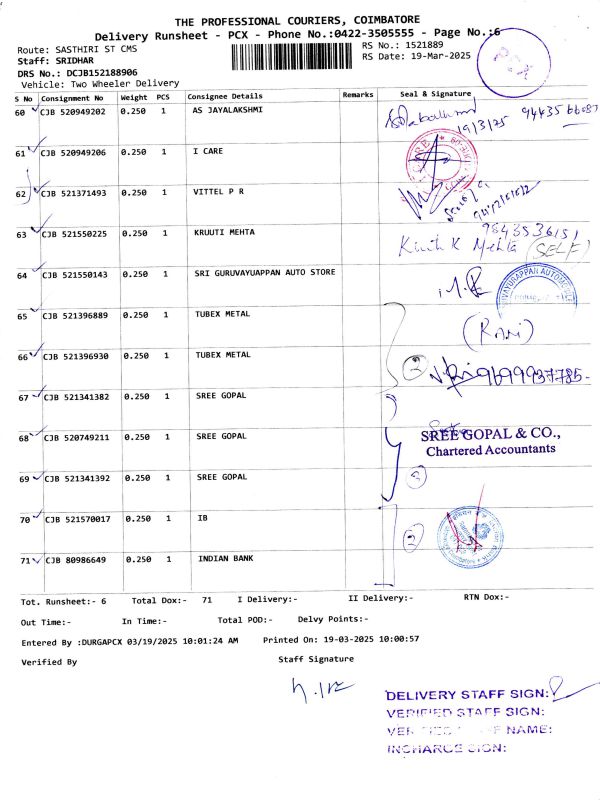 THE PROFESSIONAL COURIERS, COIMBATORE
Delivery Runsheet - PCX - Phone No.:0422-3505555 - Page No.:6
Route: SASTHIRI ST CMS
RS No.: 1521889
Staff: SRIDHAR
RS Date: 19-Mar-2025
DRS No.: DCJB152188906
Vehicle: Two Wheeler Delivery
S No Consignment No Weight PCS Consignee Details Remarks Seal & Signature
60 CJB 520949202 0.250 1 AS JAYALAKSHMI
19/3/25
61 CJB 520949206 0.250 1 I CARE
62 CJB 521371493 0.250 1 VITTEL P R
63 CJB 521550225 0.250 1 KRUUTI MEHTA
K Mehta (SELF)
64 CJB 521550143 0.250 1 SRI GURUVAYUAPPAN AUTO STORE
65 CJB 521396889 0.250 1 TUBEX METAL
(Ravi)
66 CJB 521396930 0.250 1 TUBEX METAL
2 9699937785-
67 CJB 521341382 0.250 1 SREE GOPAL
68 CJB 520749211 0.250 1 SREE GOPAL
SREE GOPAL & CO.,
Chartered Accountants
69 CJB 521341392 0.250 1 SREE GOPAL
3
70 CJB 521570017 0.250 1 IB
2
71 CJB 80986649 0.250 1 INDIAN BANK
Tot. Runsheet:- 6 Total Dox:- 71 I Delivery:- II Delivery:- RTN Dox:-
Out Time:- In Time:- Total POD:- Delvy Points:-
Entered By :DURGAPCX 03/19/2025 10:01:24 AM Printed On: 19-03-2025 10:00:57
Verified By Staff Signature
DELIVERY STAFF SIGN:
VERIFIED STAFF SIGN:
NAME:
INCHARGE SIGN: